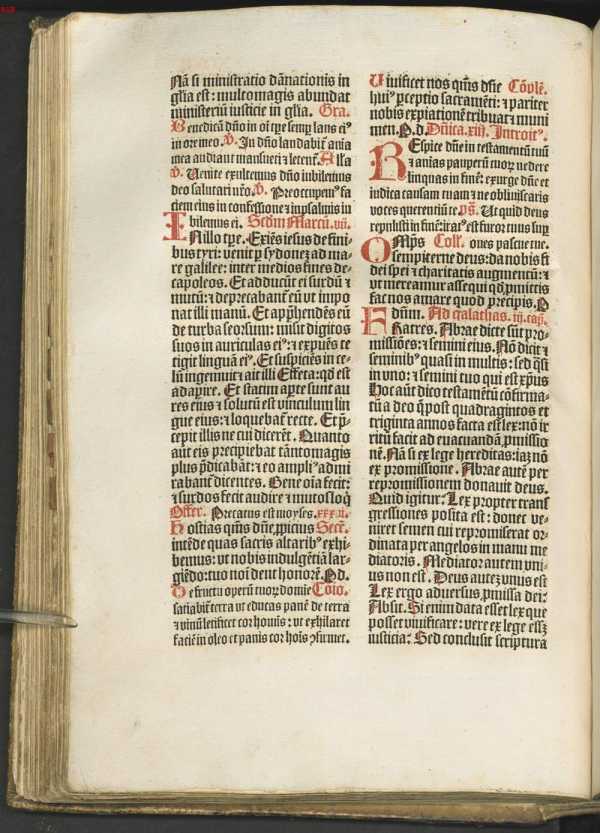 Nā si ministratio dānationis in
glīa est: multomagis abundat
ministeriū iusticie in glīa. Gra.
Benedicā dn̄o in oī tꝑe semꝑ laus eiꝰ
in ore meo. V̄. In dn̄o laudabit̄ aīa
mea audiant mansueti ⁊ letent̄. Alla
V̄. Venite exultemus dn̄o iubilemus
deo salutari nr̄o. V̄. Preoccupemꝰ fa
ciem eius in confessione ⁊ in psalmis iu
bilemus ei. Scdm̄ Marcū. vii.
IN illo tꝑe. Exiēs iesus de fini
bus tyri: venit ꝑ sydonez ad ma
re galilee: inter medios fines de-
capoleos. Et adducūt ei surdū ⁊
mutū: ⁊ deprecabant̄ eū vt impo
nat illi manū. Et apꝓhendēs eū
de turba seorsum: misit digitos
suos in auriculas eiꝰ: ⁊ expuēs te
tigit linguā eiꝰ. Et suspiciēs in ce-
lū ingemuit ⁊ ait illi Effeta: qd̄ est
adaꝑire. Et statim aꝑte sunt au
res eius ⁊ solutū est vinculum lin
gue eius: ⁊ loquebat̄ recte. Et p̄-
cepit illis ne cui dicerēt. Quanto
aūt eis precipiebat tāntomagis
plus p̄dicabāt: ⁊ eo ampliꝰ admi
rabant̄ dicentes. Bene oīa fecit:
⁊ surdos fecit audire ⁊ mutos loq̄
Offer. Precatus est moyses. xxx ij.
Hostias qm̄s dn̄e ꝓpicius Secē.
intēde quas sacris altaribꝰ exhi-
bemus: vt nobis indulgētiā lar-
giēdo: tuo noī dent honorē. P̄ d.
De fructu operū tuoꝝ domie Cōio.
satiabit̄ terra vt educas panē de terra
⁊ vinū letificet cor hoīnis: vt exhilaret
faciē in oleo et panis cor hoīs ꝯfirmet.
Viuificet nos qm̄s dn̄e Cōplē.
huiꝰ ꝑceptio sacramēti: ⁊ pariter
nobis expiationē tribuat ⁊ muni
men. P̄. d. Dn̄ica. xiii. Introitꝰ.
REspice dn̄e in testamentū tuū
⁊ animas pauperū tuoꝝ ne dere
linquas in finē: exurge dn̄e et
iudica causam tuam ⁊ ne obliuiscaris
voces querentiū te. ps̄. Ut quid deus
repulisti in finē: iratꝰ est furoꝛ tuus suꝑ
OMps̄ Coll̄. oues pascue tue.
sempiterne deus: da nobis fi
dei spei ⁊ charitatis augmentū: ⁊
vt mereamur assequi qd̄ ꝓmittis
fac nos amare quod precipis. P̄
dn̄um. Ad galathas. iij. cap̄.
FRatres. Abrae dicte sūt pro-
missiōes: ⁊ semini eius. Nō dicit ⁊
seminibꝰ quasi in multis: sed q̄si
in vno: ⁊ semini tuo qui est xp̄us
Hoc aūt dico testamētū cōfirma-
tū a deo q̄ post quadragintos et
triginta annos facta est lex: nō ir
ritū facit ad euacuandā ꝓmissio
nē. Nā si ex lege hereditas: iaꝫ nō
ex promissione. Abrae autē per
repromissionem donauit deus.
Quid igitur: Lex propter trans
gressiones posita est: donec ve-
niret semen cui repromiserat or-
dinata per angelos in manu me
diatoris. Mediator autem vni-
us non est. Deus autez vnus est
Lex ergo aduersus ꝓmissa dei:
Absit. Si enim data esset lex que
posset viuificare: vere ex lege essꝫ
iusticia: Sed conclusit scriptura